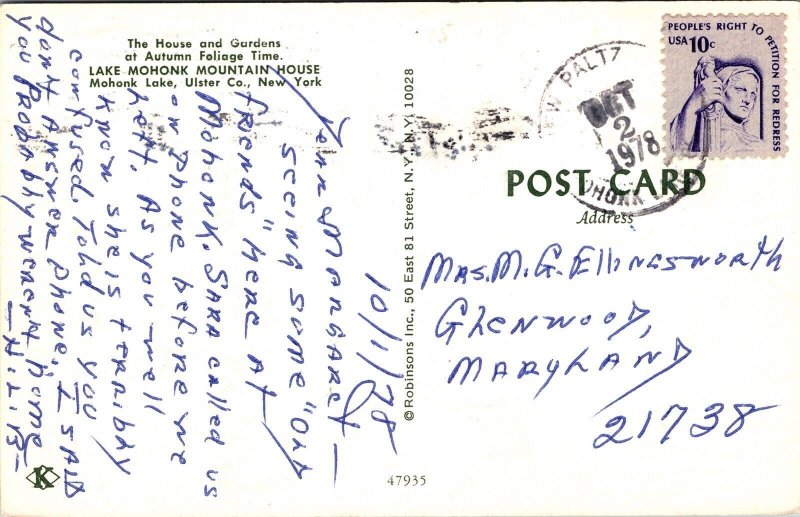 The House and Gardens
at Autumn Foliage Time.
LAKE MOHONK MOUNTAIN HOUSE
Mohonk Lake, Ulster Co., New York
10/1/78
Dear Margaret —
seeing some "old
friends" here at
Mohonk. Sara called us
on phone before we
left. As you well
know she is terribly
confused. Told us you
don't answer phone. I said
you probably weren't home
— H.L.B —
©Robinsons Inc., 50 East 81 Street, N.Y., N.Y. 10028
PEOPLE'S RIGHT TO PETITION FOR REDRESS
USA 10c
NEW PALTZ
OCT
2
1978
POST CARD
Address
Mrs. M. G. Ellingsworth
Glenwood,
Maryland
21738
K
47935